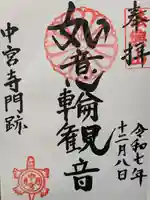 奉拝
令和七年
十二月八日
如意輪観音
中宮寺門跡